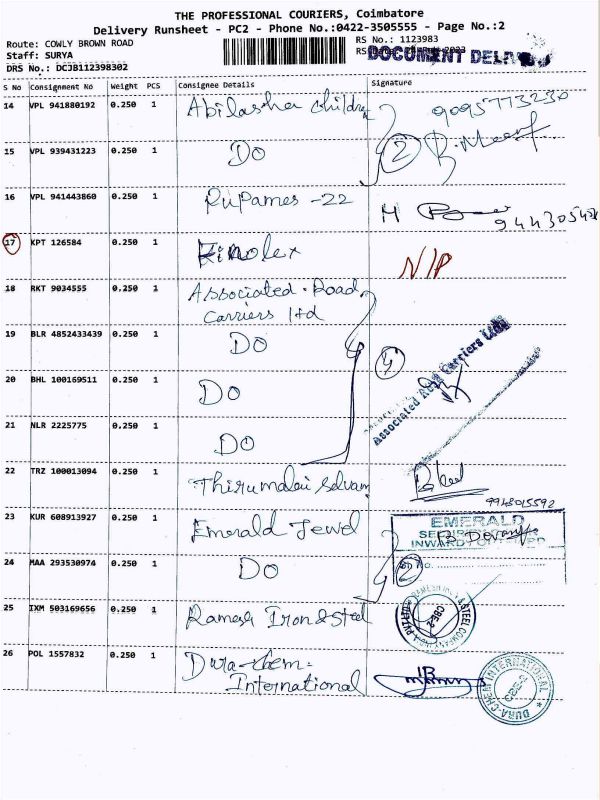 THE PROFESSIONAL COURIERS, Coimbatore
Delivery Runsheet - PC2 - Phone No.:0422-3505555 - Page No.:2
Route: COWLY BROWN ROAD
RS No.: 1123983
Staff: SURYA
DOCUMENT
DRS No.: DCJB112398302
S No Consignment No Weight PCS Consignee Details Signature
14 VPL 941880192 0.250 1 Abilasha 9095773230
15 VPL 939431223 0.250 1 DO 2
16 VPL 941443860 0.250 1 Rupames -22
17 KPT 126584 0.250 1 Kinolex N/P
18 RKT 9034555 0.250 1 Associated Road
Carriers ltd
19 BLR 4852433439 0.250 1 DO 4
20 BHL 100169511 0.250 1 DO
Associated Road Carriers Ltd
21 NLR 2225775 0.250 1 DO
22 TRZ 100013094 0.250 1 Thirumalai Selvam
9948015592
23 KUR 608913927 0.250 1 Emerald Jewel
EMERALD
INWARD
24 MAA 293530974 0.250 1 DO 2
25 IXM 503169656 0.250 1 Ramesh Iron & steel
26 POL 1557832 0.250 1 Dura-chem
International
DURA-CHEM INTERNATIONAL